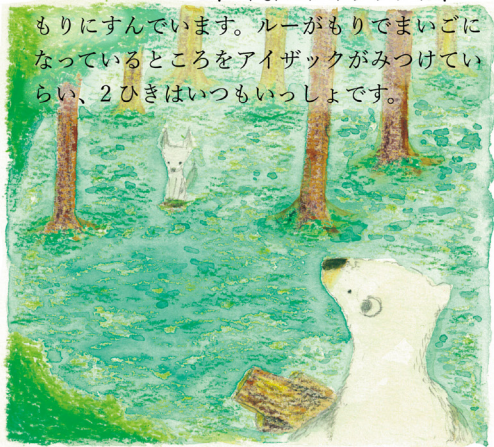 もりにすんでいます。ルーがもりでまいごに
なっているところをアイザックがみつけてい
らい、2ひきはいつもいっしょです。